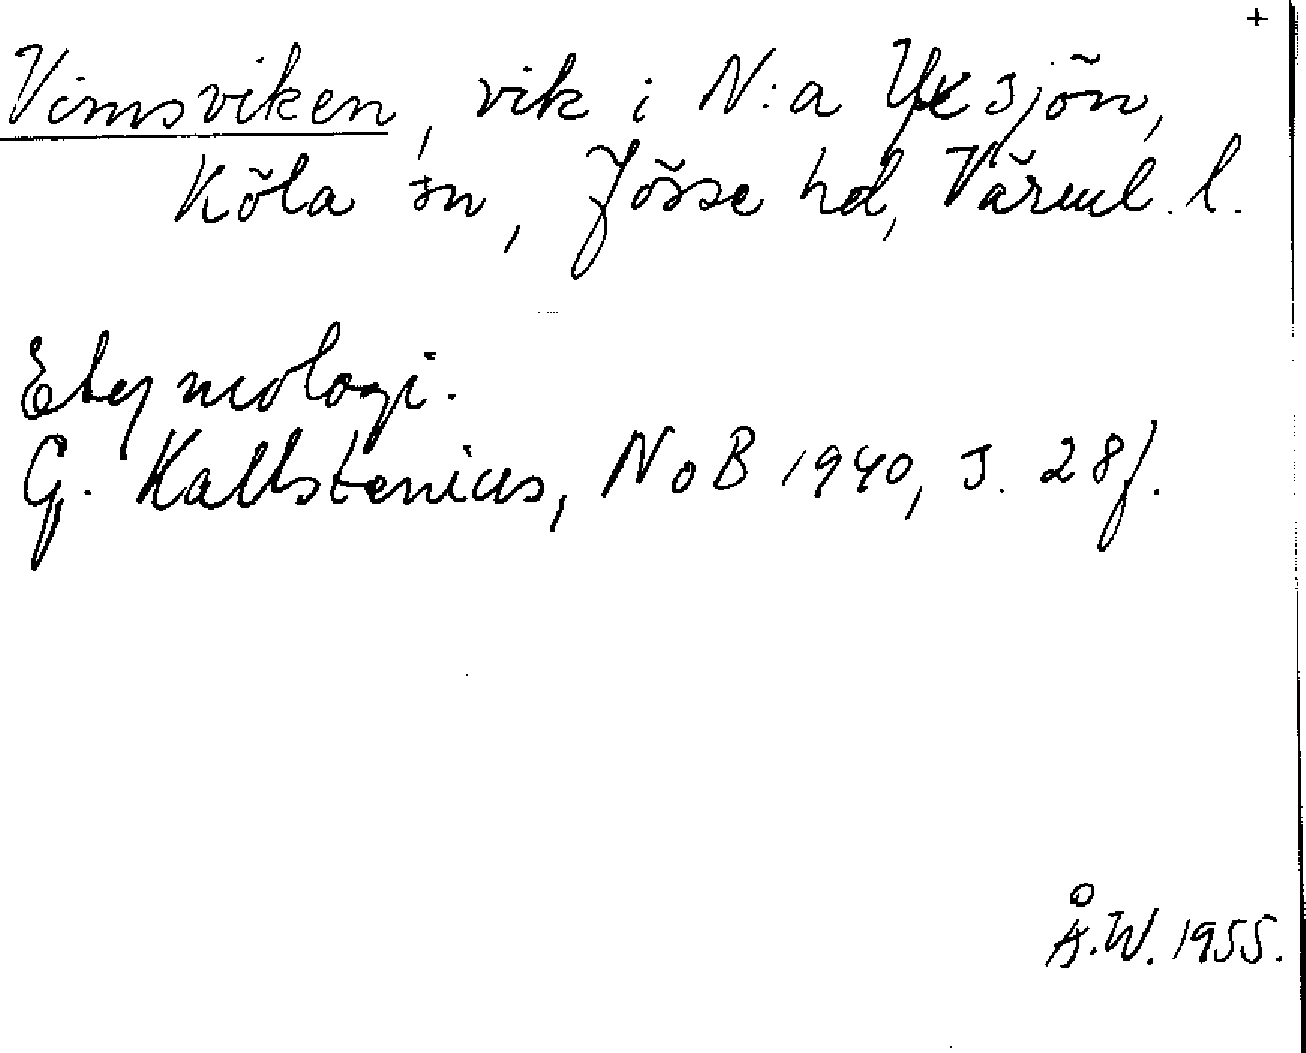 +
Vimsviken, vik i N:a Yxsjön,
Köla sn, Jösse hd, Värml. l.
Etymologi.
G. Kallstenius, NoB 1940, s. 28f.
Å.W. 1955.